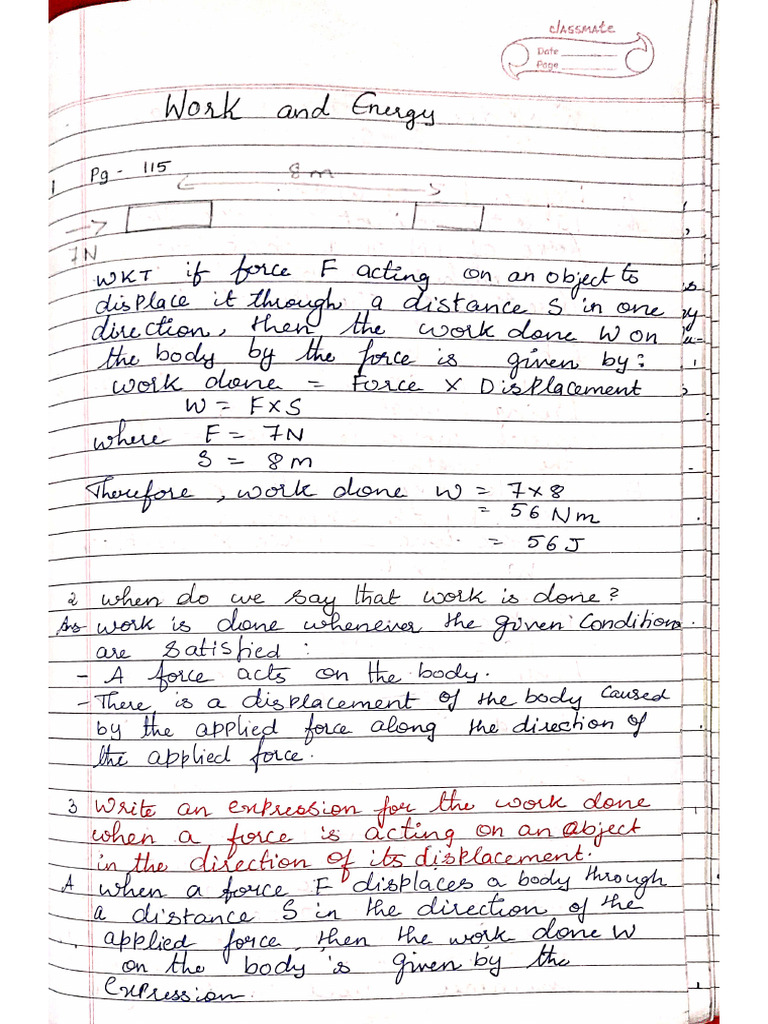 classmate
Date
Page
Work and Energy
1 Pg - 115
8 m
7N
WKT if force F acting on an object to
displace it through a distance S in one
direction, then the work done W on
the body by the force is given by:
work done = Force X Displacement
W = F X S
where F = 7N
S = 8 m
Therefore, work done W = 7 x 8
= 56 Nm
= 56 J
2 when do we say that work is done?
Ans work is done whenever the given conditions
are satisfied :
- A force acts on the body.
- There is a displacement of the body caused
by the applied force along the direction of
the applied force.
3 Write an expression for the work done
when a force is acting on an object
in the direction of its displacement.
A when a force F displaces a body through
a distance S in the direction of the
applied force, then the work done W
on the body is given by the
expression.